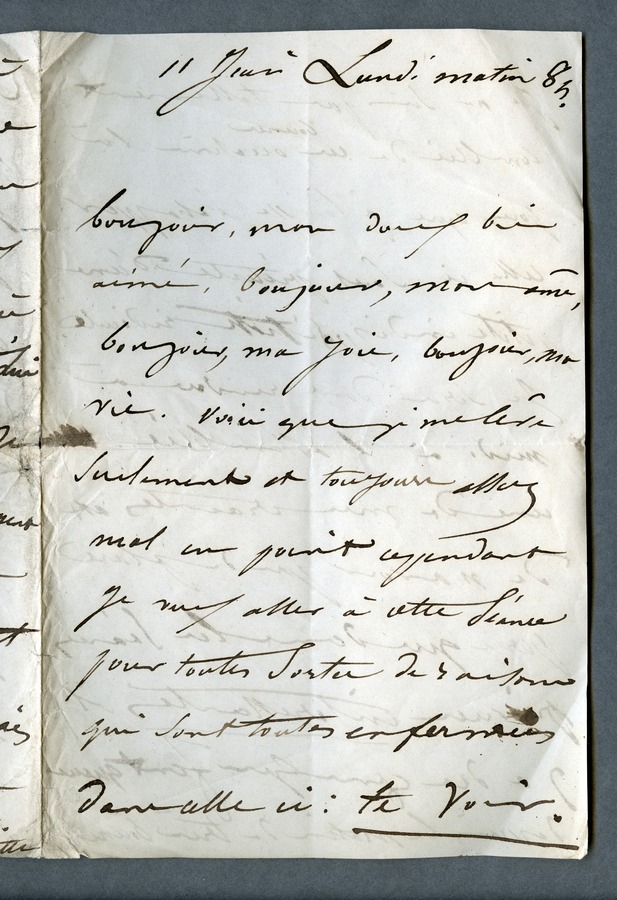 11 Juin Lundi matin 8h.
bonjour, mon doux bien
aimé, bonjour, mon âme,
bonjour, ma joie, bonjour, ma
vie. Voici que je me lève
seulement et toujours assez
mal en point cependant
je veux aller à cette séance
pour toutes sortes de raisons
qui sont toutes enfermées
dans celle ci : te voir.